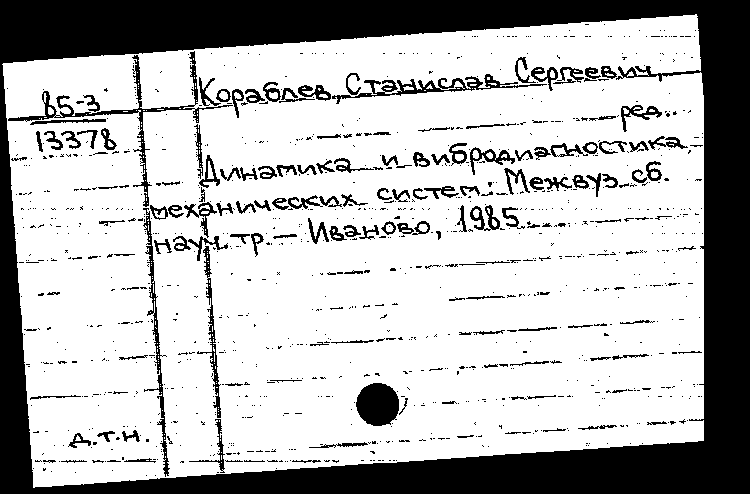 85-3
13378
Кораблев, Станислав Сергеевич,
ред.
Динамика и вибродиагностика
механических систем: Межвуз. сб.
науч. тр. — Иваново, 1985.
д.т.н.